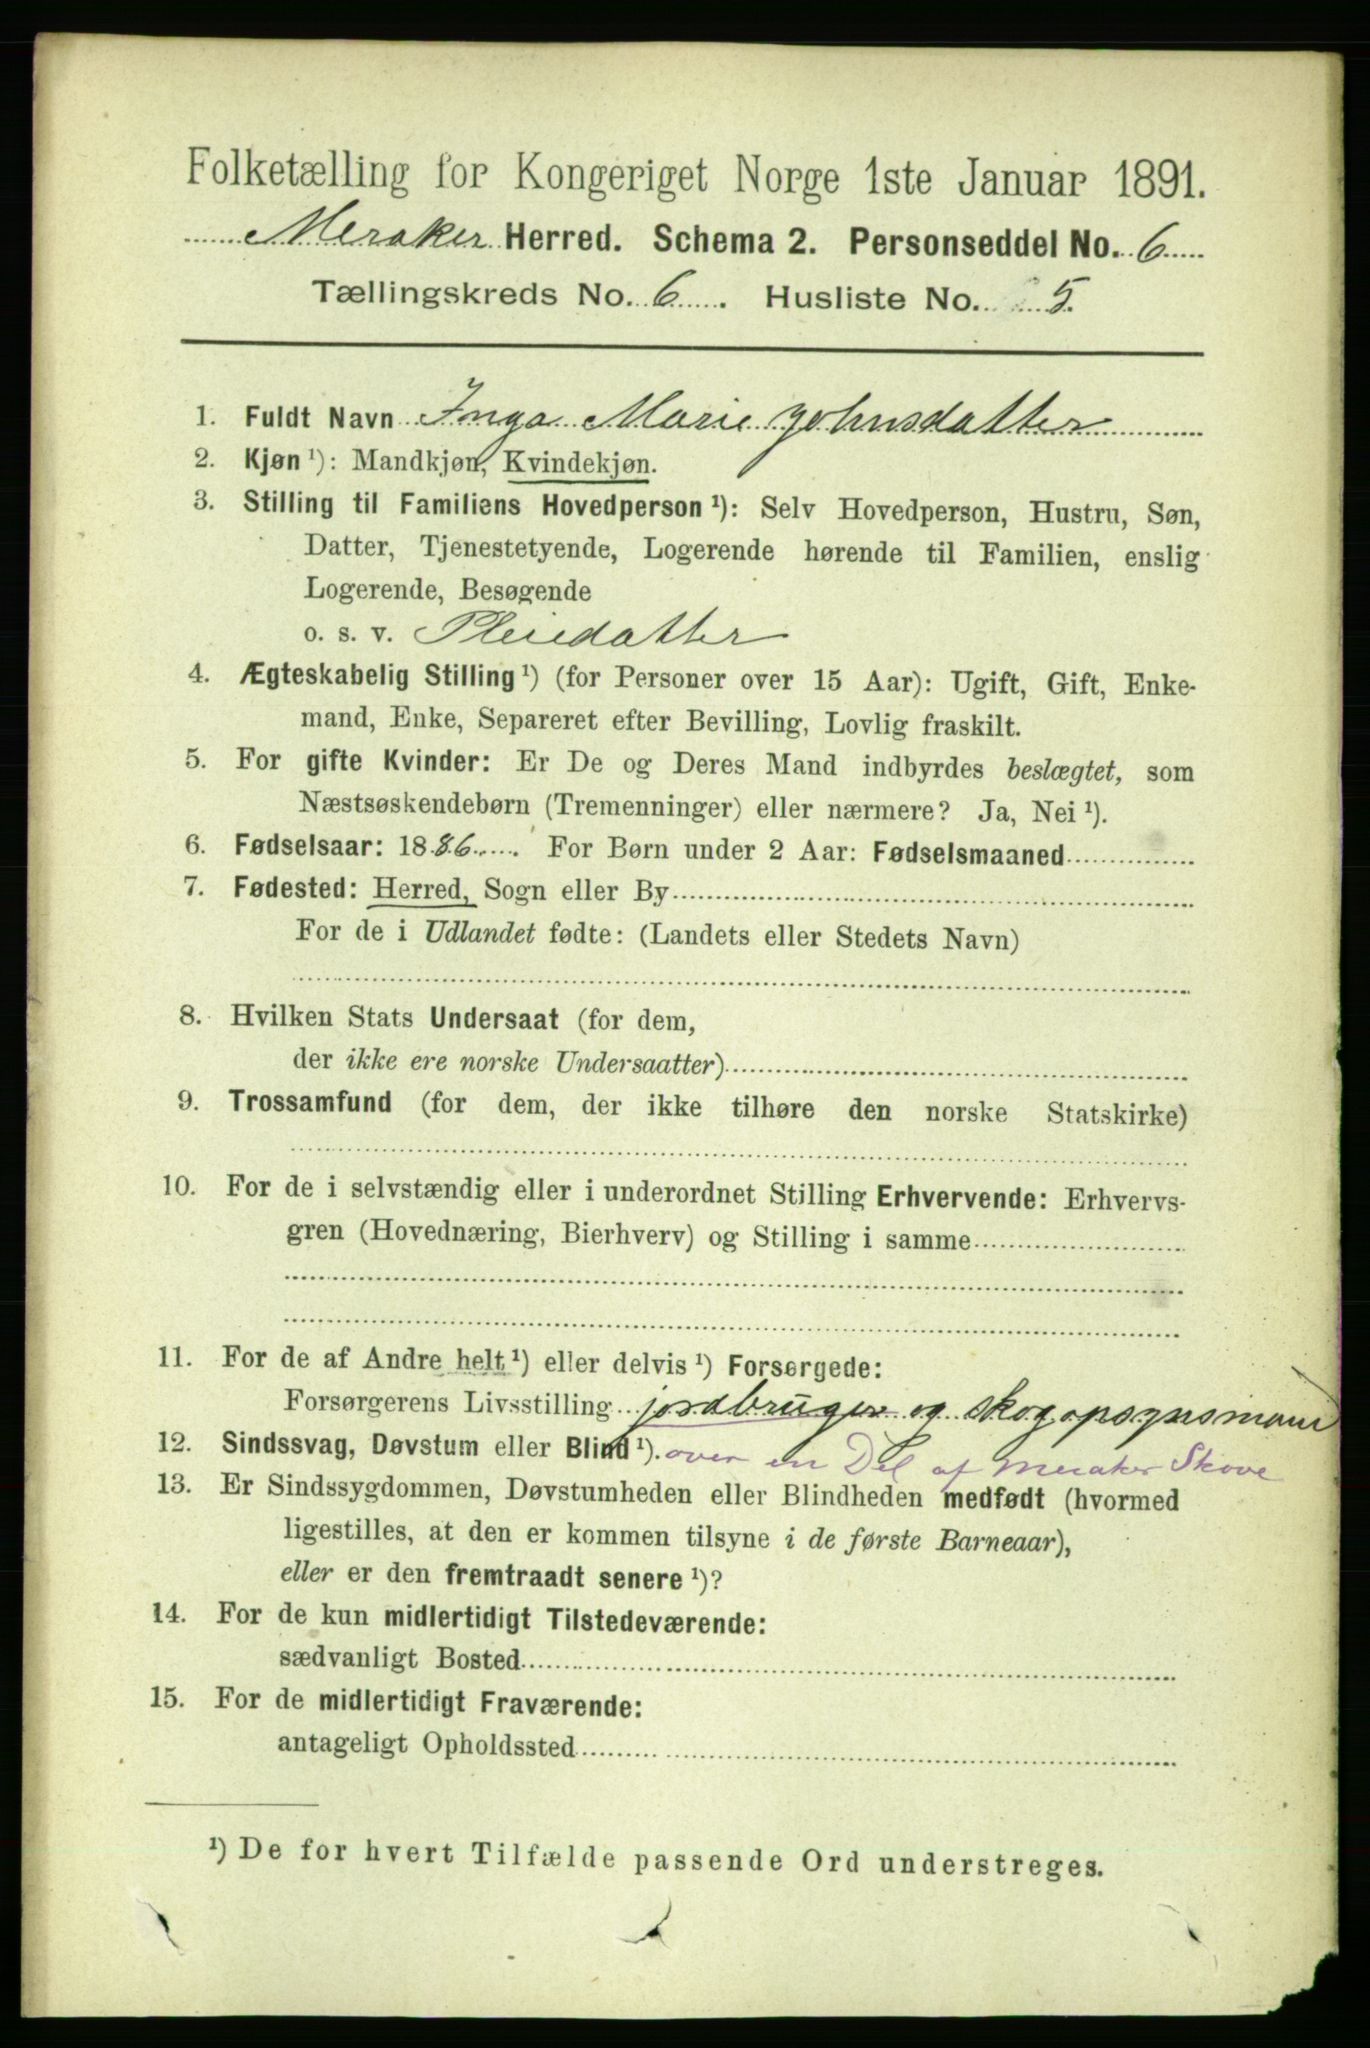 Folketælling for Kongeriget Norge 1ste Januar 1891.
Meraker Herred. Schema 2. Personseddel No. 6
Tællingskreds No. 6. Husliste No. 5.
1. Fuldt Navn Inga Marie Johnsdatter
2. Kjøn ¹): Mandkjøn, Kvindekjøn.
3. Stilling til Familiens Hovedperson ¹): Selv Hovedperson, Hustru, Søn,
Datter, Tjenestetyende, Logerende hørende til Familien, enslig
Logerende, Besøgende
o. s. v. Pleiedatter
4. Ægteskabelig Stilling ¹) (for Personer over 15 Aar): Ugift, Gift, Enke-
mand, Enke, Separeret efter Bevilling, Lovlig fraskilt.
5. For gifte Kvinder: Er De og Deres Mand indbyrdes beslægtet, som
Næstsøskendebørn (Tremenninger) eller nærmere? Ja, Nei ¹).
6. Fødselsaar: 1886. For Børn under 2 Aar: Fødselsmaaned
7. Fødested: Herred, Sogn eller By
For de i Udlandet fødte: (Landets eller Stedets Navn)
8. Hvilken Stats Undersaat (for dem,
der ikke ere norske Undersaatter)
9. Trossamfund (for dem, der ikke tilhøre den norske Statskirke)
10. For de i selvstændig eller i underordnet Stilling Erhvervende: Erhvervs-
gren (Hovednæring, Bierhverv) og Stilling i samme
11. For de af Andre helt ¹) eller delvis ¹) Forsørgede:
Forsørgerens Livsstilling jordbruger og skogopsynsmand
12. Sindssvag, Døvstum eller Blind ¹). over en Del af Meraker Skove
13. Er Sindssygdommen, Døvstumheden eller Blindheden medfødt (hvormed
ligestilles, at den er kommen tilsyne i de første Barneaar),
eller er den fremtraadt senere ¹)?
14. For de kun midlertidigt Tilstedeværende:
sædvanligt Bosted
15. For de midlertidigt Fraværende:
antageligt Opholdssted
¹) De for hvert Tilfælde passende Ord understreges.